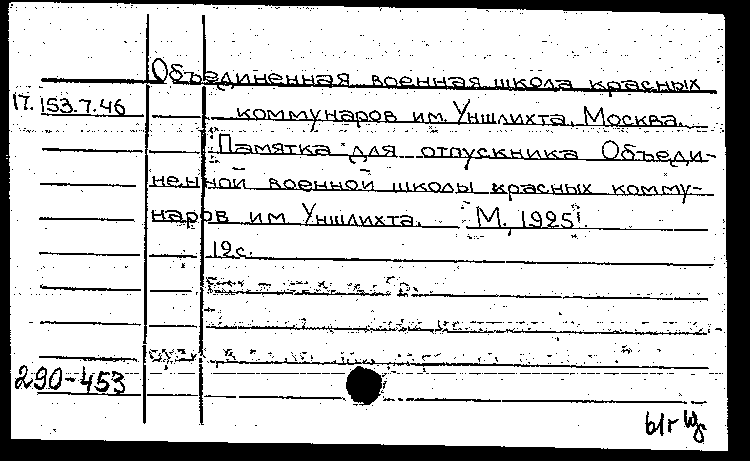 Объединенная военная школа красных
17.153.7.46 коммунаров им. Уншлихта. Москва.
Памятка для отпускника Объеди-
ненной военной школы красных комму-
наров им Уншлихта. М., 1925.
12с.
290-453